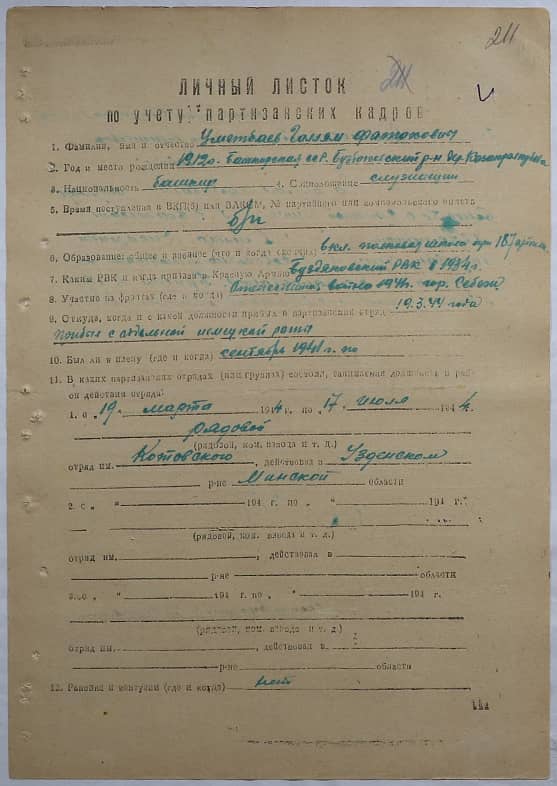 211
211
ЛИЧНЫЙ ЛИСТОК
по учету партизанских кадров
1. Фамилия, имя и отчество Уметбаев
2. Год и место рождения 1912г. Башкирская р-н дер.
3. Национальность башкир 4. Соцположение служащий
5. Время поступления в ВКП(б) или ВЛКСМ, № партийного или комсомольского билета
б/п
6. Образование: общее и военное (что и когда окончил) 6 кл. полковая школа при 187
7. Каким РВК и когда призван в Красную Армию Буздяковский РВК в 1934 г.
8. Участие на фронтах (где и когда) война 1941г. гор. Себеж
9. Откуда, когда и с какой должности прибыл в партизанский отряд 19.3.44 года
Прибыл с немецкой роты
10. Был ли в плену (где и когда) сентябрь 1941 г. по
11. В каких партизанских отрядах (или группах) состоял, занимаемая должность и рай-
он действия отряда:
1. с „19 марта 1944 г. по „17 июля 1944.
рядовой
(рядовой, ком. взвода и т. д.)
отряд им. Котовского, действовал в Узденском
р-не Минской области
2. с „ “ 194 г. по „ “ 194 г.
(рядовой, ком. взвода и т. д.)
отряд им. , действовал в
р-не области
3. с „ “ 194 г. по „ “ 194 г.
(рядовой, ком. взвода и т. д.)
отряд им. , действовал в
р-не области
12. Ранения и контузии (где и когда) нет